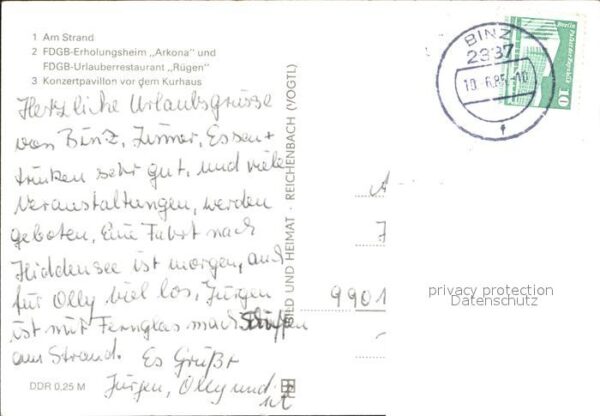 1 Am Strand
2 FDGB-Erholungsheim „Arkona" und
FDGB-Urlauberrestaurant „Rügen"
3 Konzertpavillon vor dem Kurhaus
Herzliche Urlaubsgrüsse
von Binz, Zimmer, Essen +
trinken sehr gut, und viele
Veranstaltungen, werden
geboten, Eine Fahrt nach
Hiddensee ist morgen, auch
für Olly viel los, Jürgen
ist mit Fernglas nach Schiffen
am Strand. Es Grüßt
Jürgen, Olly und
DDR 0,25 M
BILD UND HEIMAT · REICHENBACH (VOGTL)
BINZ
2337
10
9901
privacy protection
Datenschutz